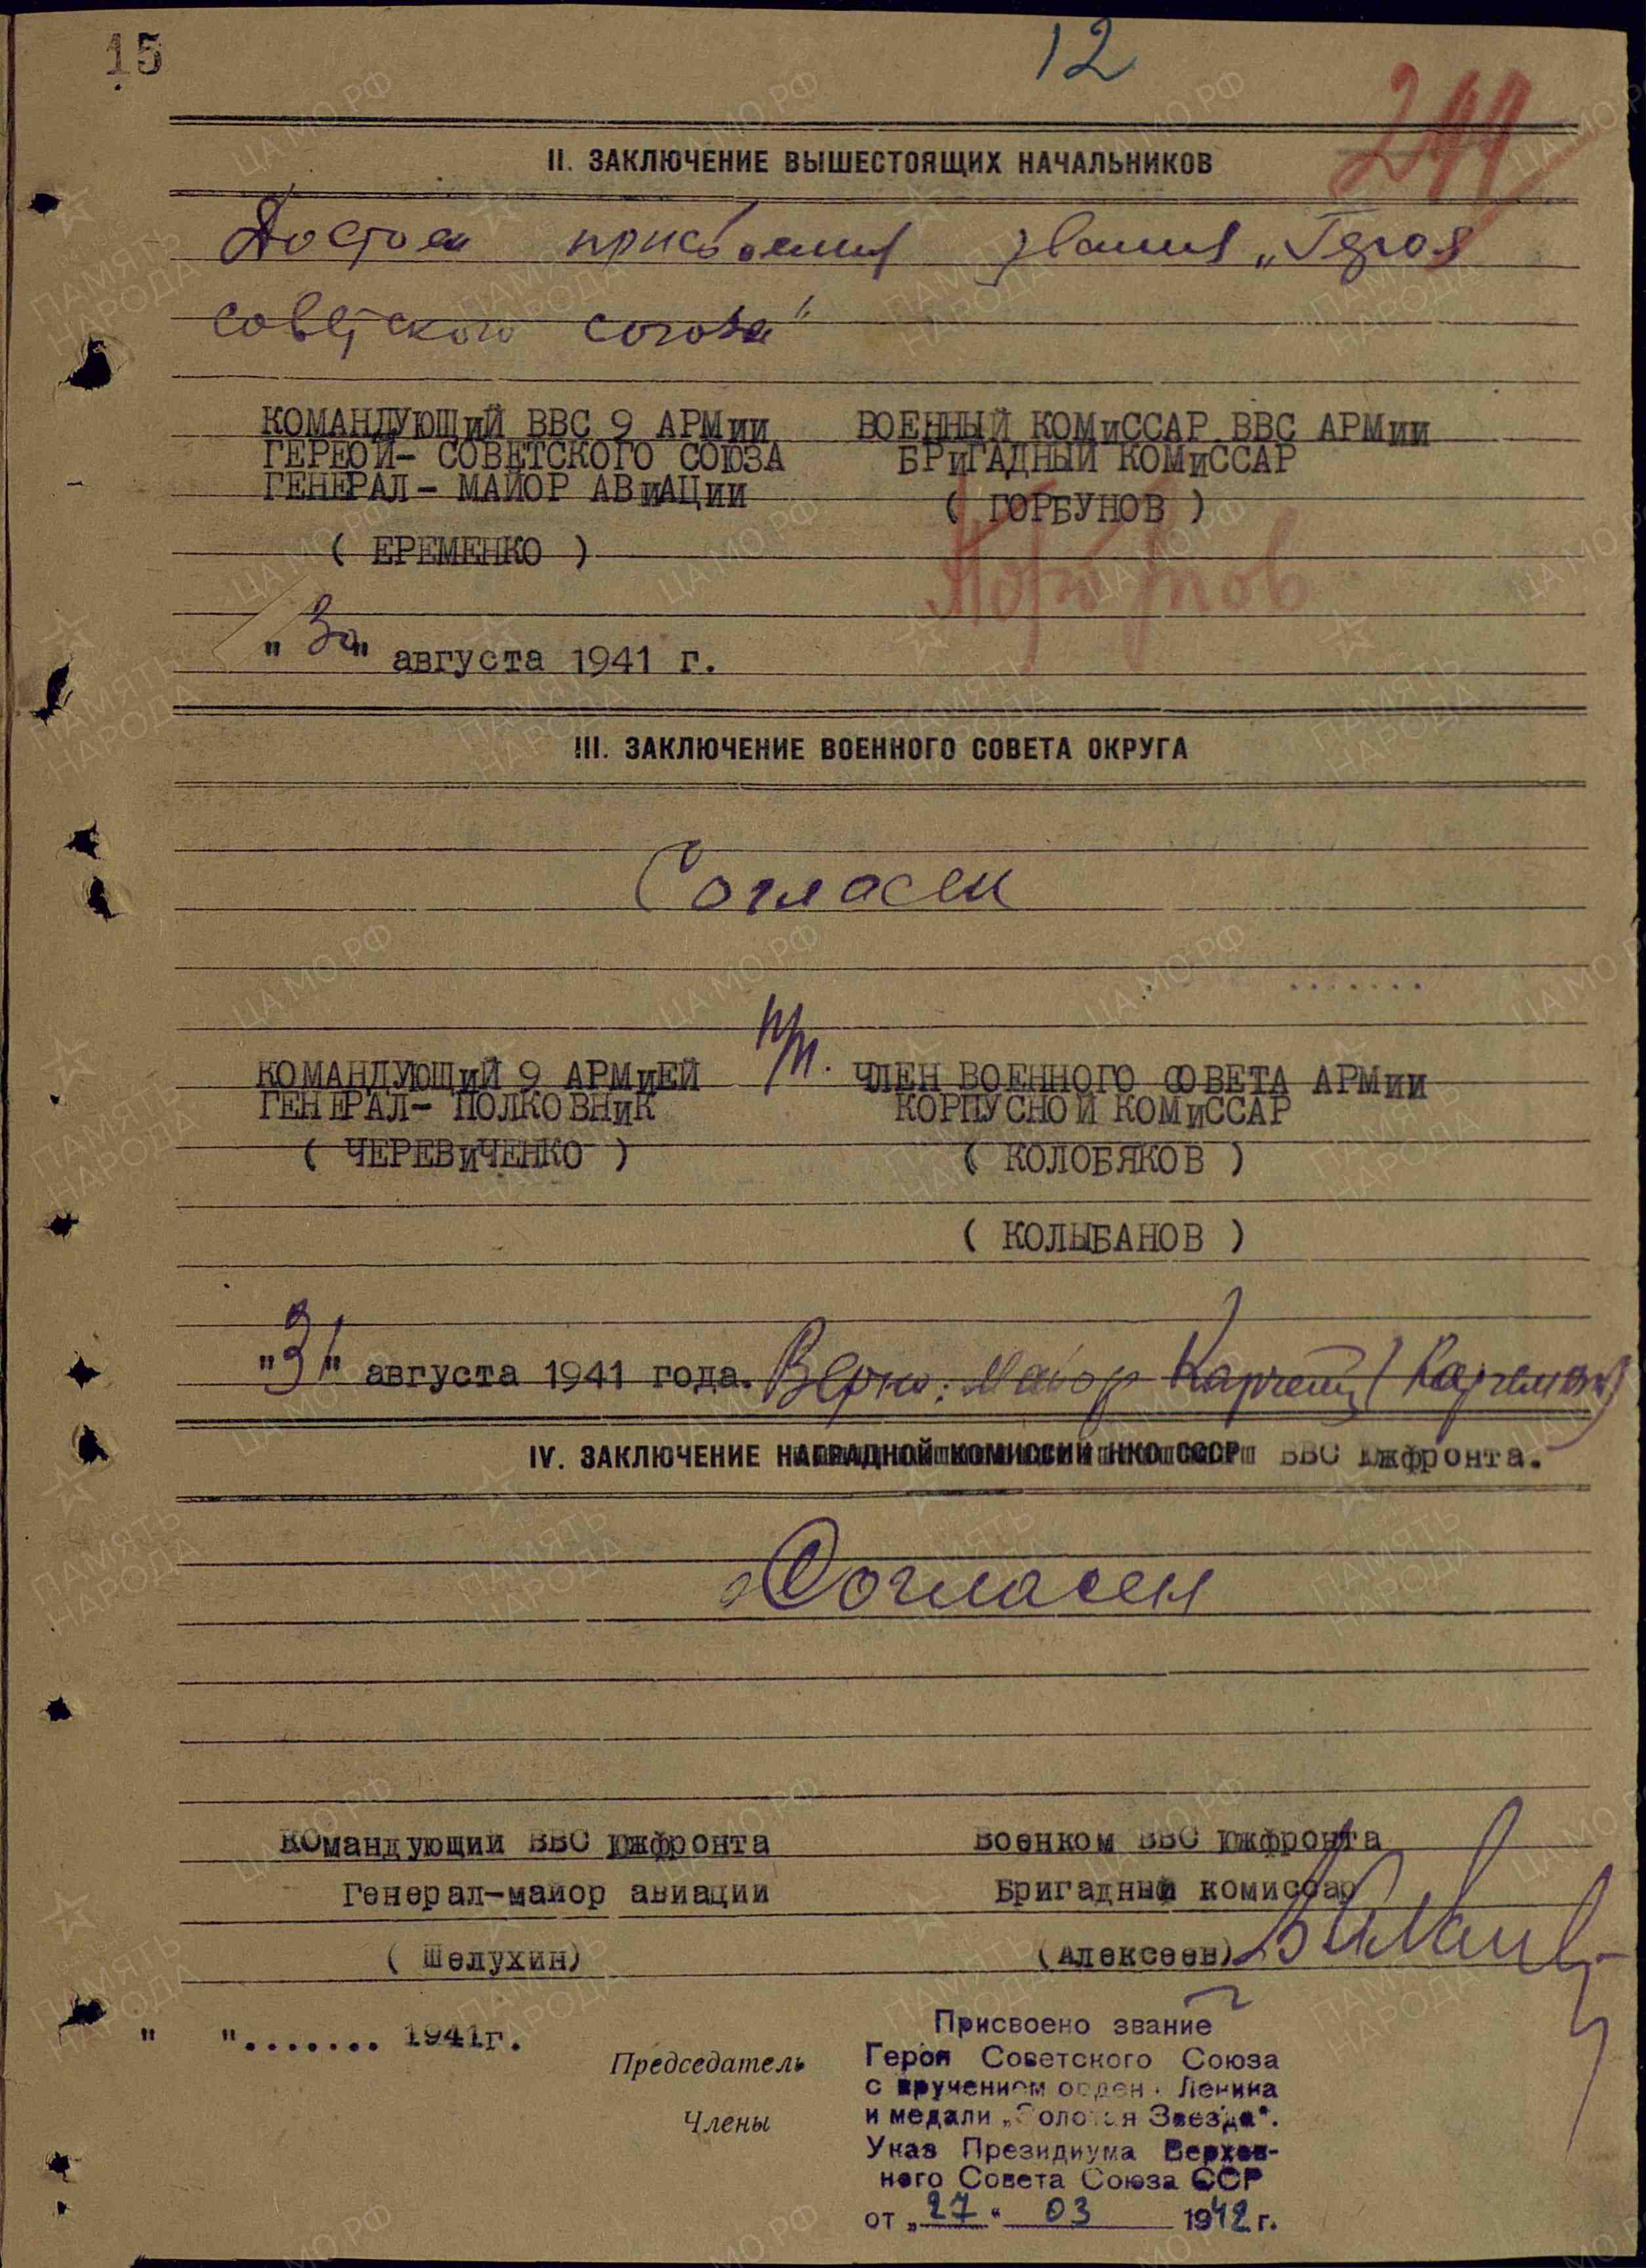 15
12
II. ЗАКЛЮЧЕНИЕ ВЫШЕСТОЯЩИХ НАЧАЛЬНИКОВ
Достоен присвоения звания „Героя
Советского союза"
КОМАНДУЮЩИЙ ВВС 9 АРМИИ ВОЕННЫЙ КОМИССАР ВВС АРМИИ
ГЕРЕОЙ- СОВЕТСКОГО СОЮЗА БРИГАДНЫЙ КОМИССАР
ГЕНЕРАЛ- МАЙОР АВИАЦИИ ( ГОРБУНОВ )
( ЕРЕМЕНКО )
"30" августа 1941 г.
III. ЗАКЛЮЧЕНИЕ ВОЕННОГО СОВЕТА ОКРУГА
Согласен
п/п.
КОМАНДУЮЩИЙ 9 АРМИЕЙ ЧЛЕН ВОЕННОГО СОВЕТА АРМИИ
ГЕНЕРАЛ- ПОЛКОВНИК КОРПУСНОЙ КОМИССАР
( ЧЕРЕВИЧЕНКО ) ( КОЛОБЯКОВ )
( КОЛЫБАНОВ )
"31" августа 1941 года. Верно: Майор
IV. ЗАКЛЮЧЕНИЕ НАГРАДНОЙ КОМИССИИ НКО СССР ВВС Южфронта.
Согласен
Командующий ВВС Южфронта Военком ВВС Южфронта
Генерал-майор авиации Бригадный комиссар
( Шелухин) (Алексеев)
" "....... 1941г.
Председатель
Члены
Присвоено звание
Героя Советского Союза
с вручением орден Ленина
и медали „Золотая Звезда".
Указ Президиума Верхов-
ного Совета Союза ССР
от „27" 03 1942 г.
ЦА МО РФ
ПАМЯТЬ НАРОДА